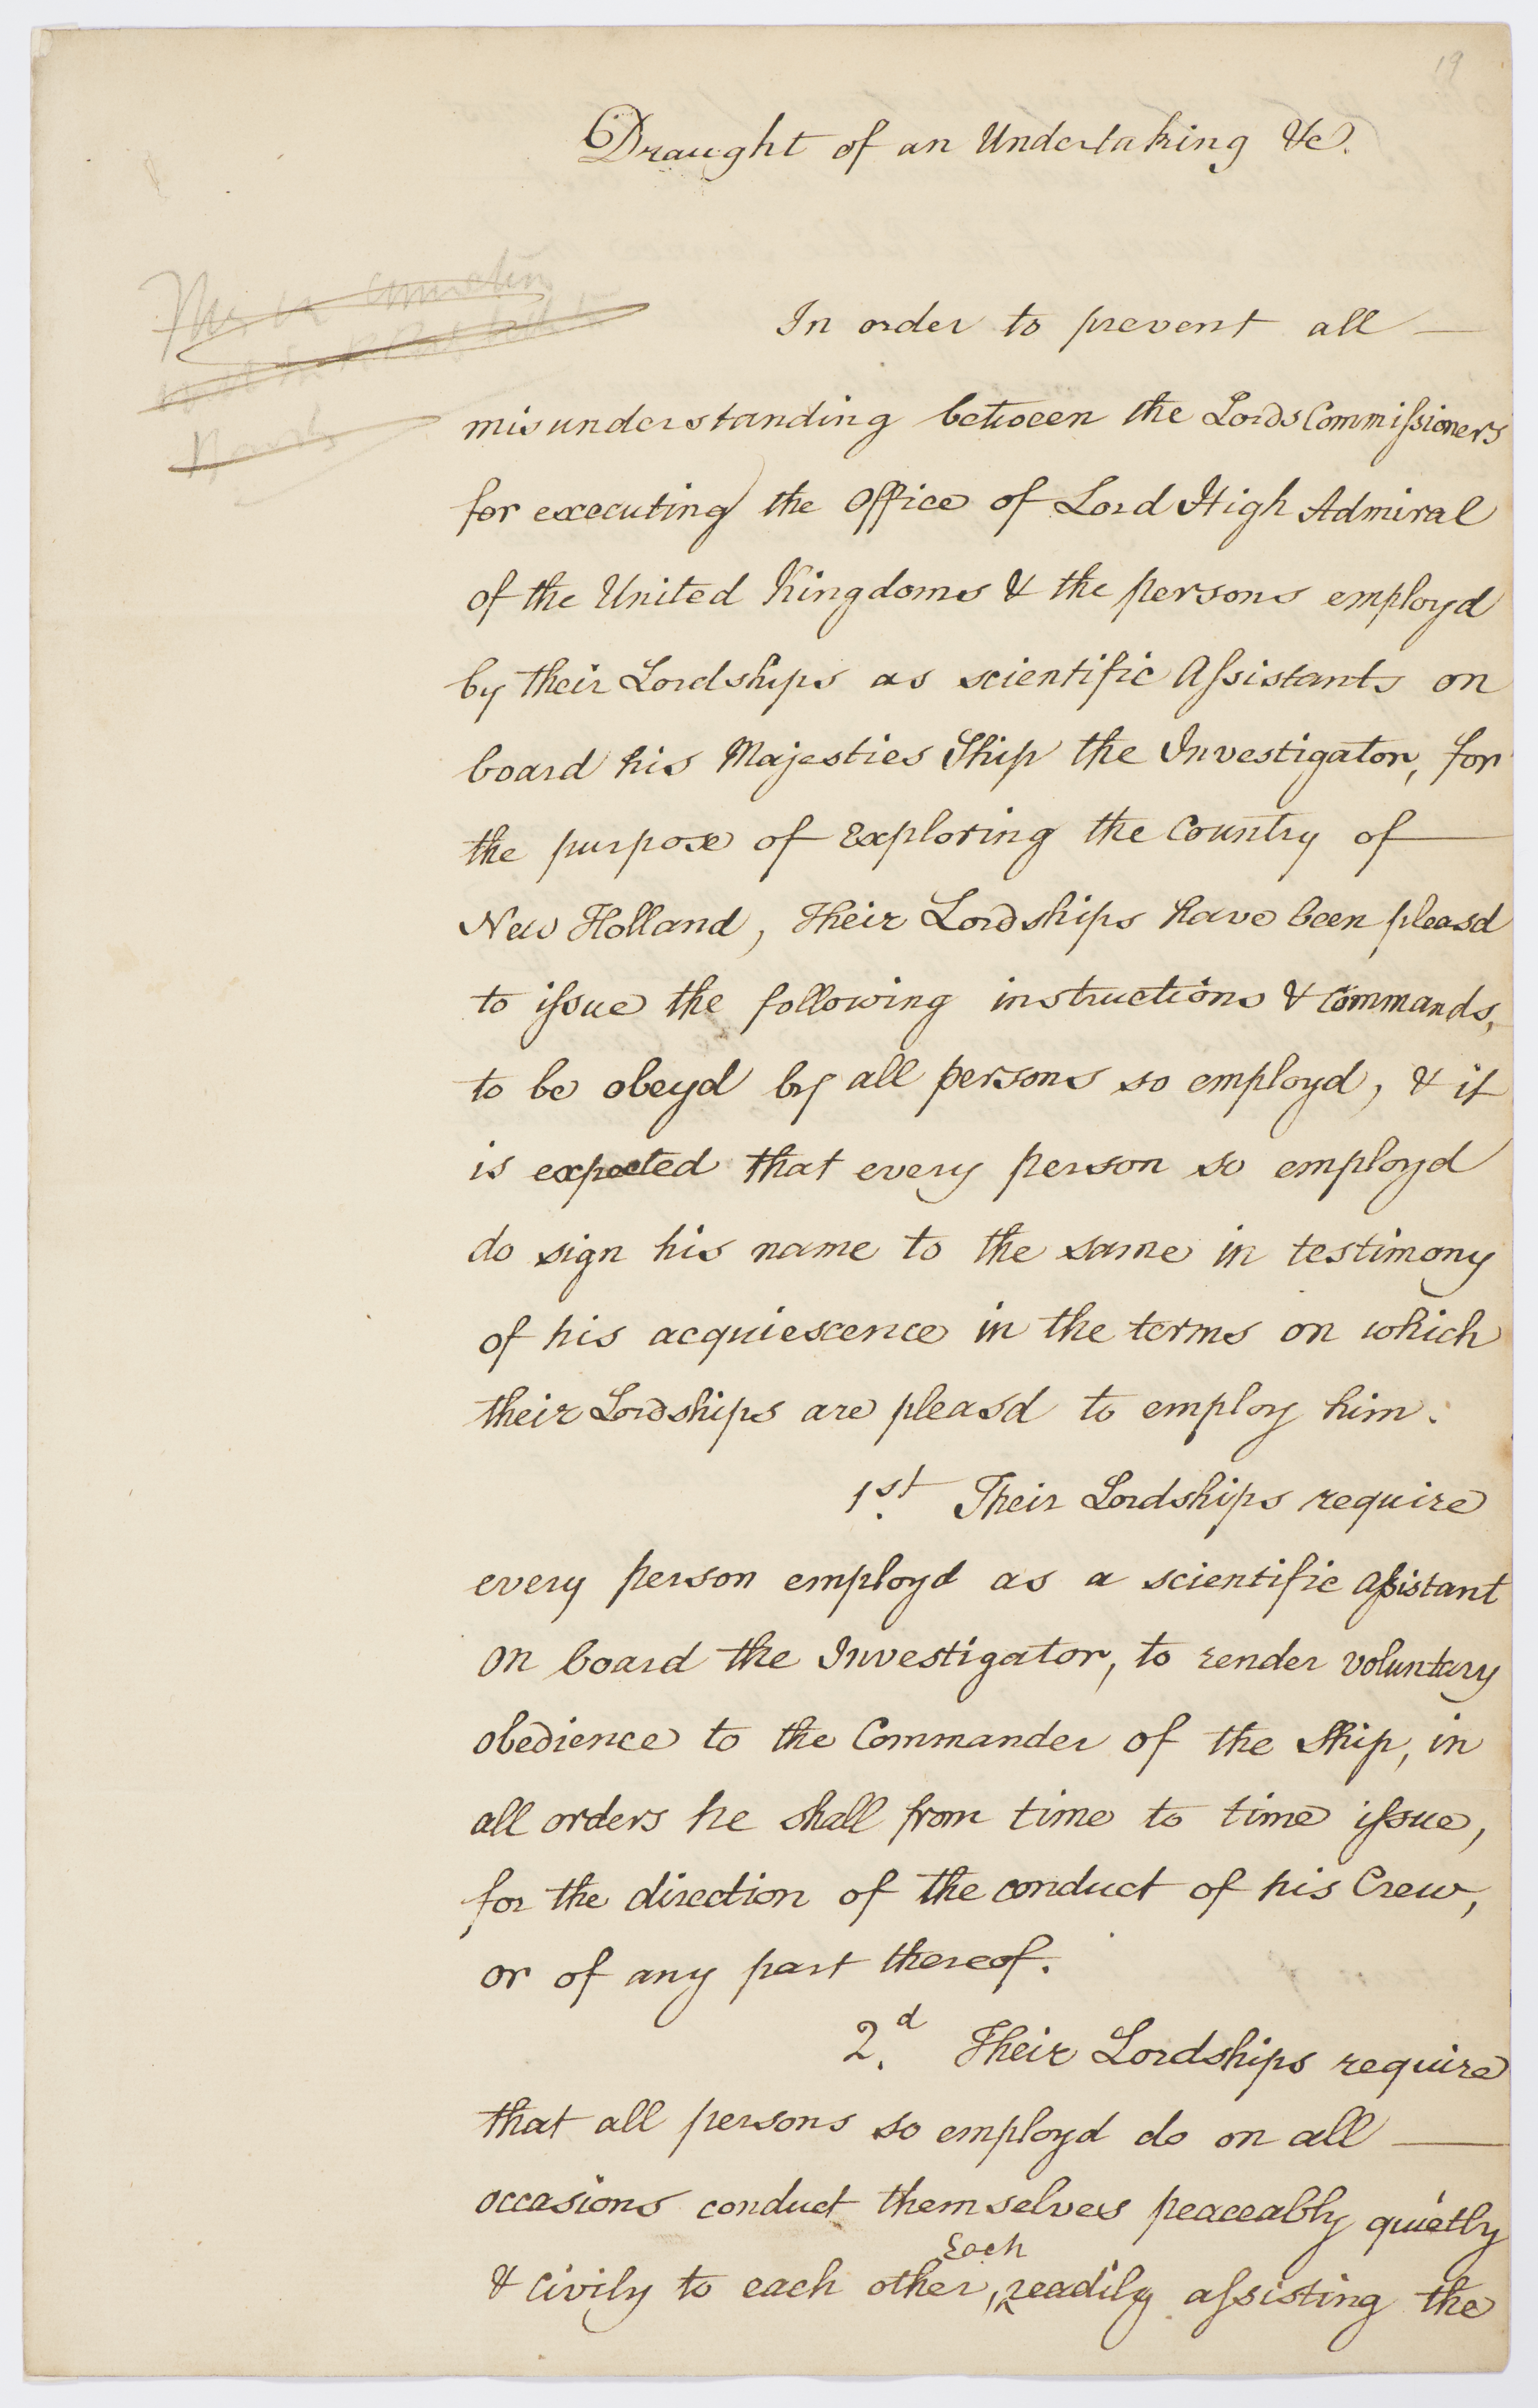 19
Draught of an Undertaking &c.
In order to prevent all —
misunderstanding between the Lords Commiſsioners
for executing the Office of Lord High Admiral
of the United Kingdoms & the persons employd
by their Lordships as scientific Aſsistants on
board his Majesties Ship the Investigator, for
the purpose of Exploring the Country of —
New Holland, Their Lordships have been pleasd
to iſsue the following instructions & Commands,
to be obeyd by all persons so employd, & it
is expected that every person so employd
do sign his name to the same in testimony
of his acquiescence in the terms on which
their Lordships are pleasd to employ him.
1.st Their Lordships require
every person employd as a scientific aſsistant
on board the Investigator, to render voluntary
obedience to the Commander of the Ship, in
all orders he shall from time to time iſsue,
for the direction of the conduct of his Crew,
or of any part thereof.
2.d Their Lordships require
that all persons so employd do on all —
occasions conduct themselves peaceably quietly
Each
& civily to each other, ^ readily aſsisting the